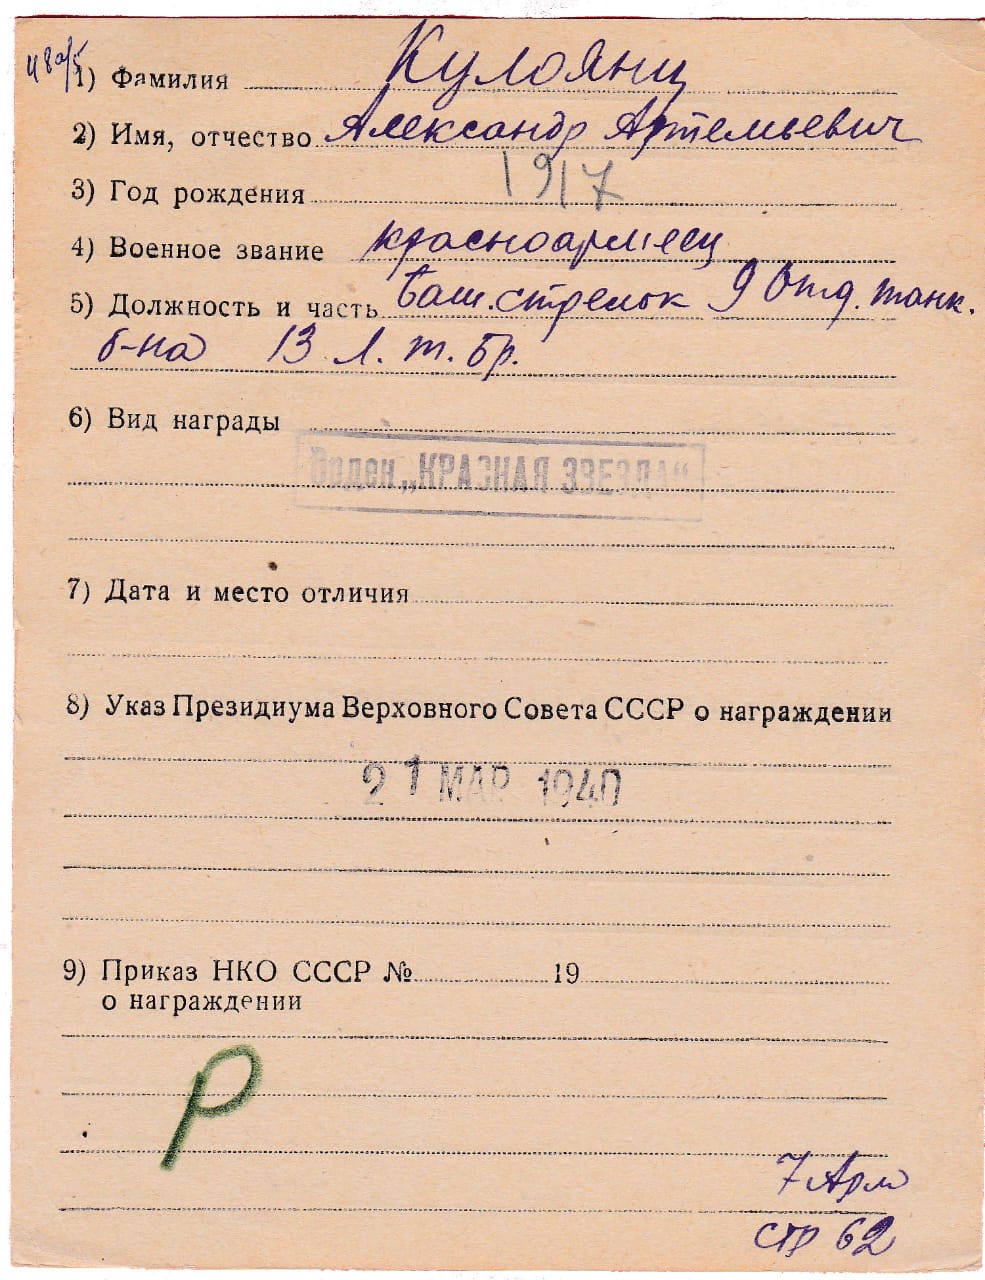 480/5
1) Фамилия Кулоянц
2) Имя, отчество Александр Артемьевич
3) Год рождения 1917
4) Военное звание красноармеец
5) Должность и часть баш. стрелок 9 Отд. танк.
б-на 13 л. т. бр.
6) Вид награды
Орден „КРАСНАЯ ЗВЕЗДА“
7) Дата и место отличия
8) Указ Президиума Верховного Совета СССР о награждении
21 МАР 1940
9) Приказ НКО СССР № 19
о награждении
Р
7 Арм
стр 62